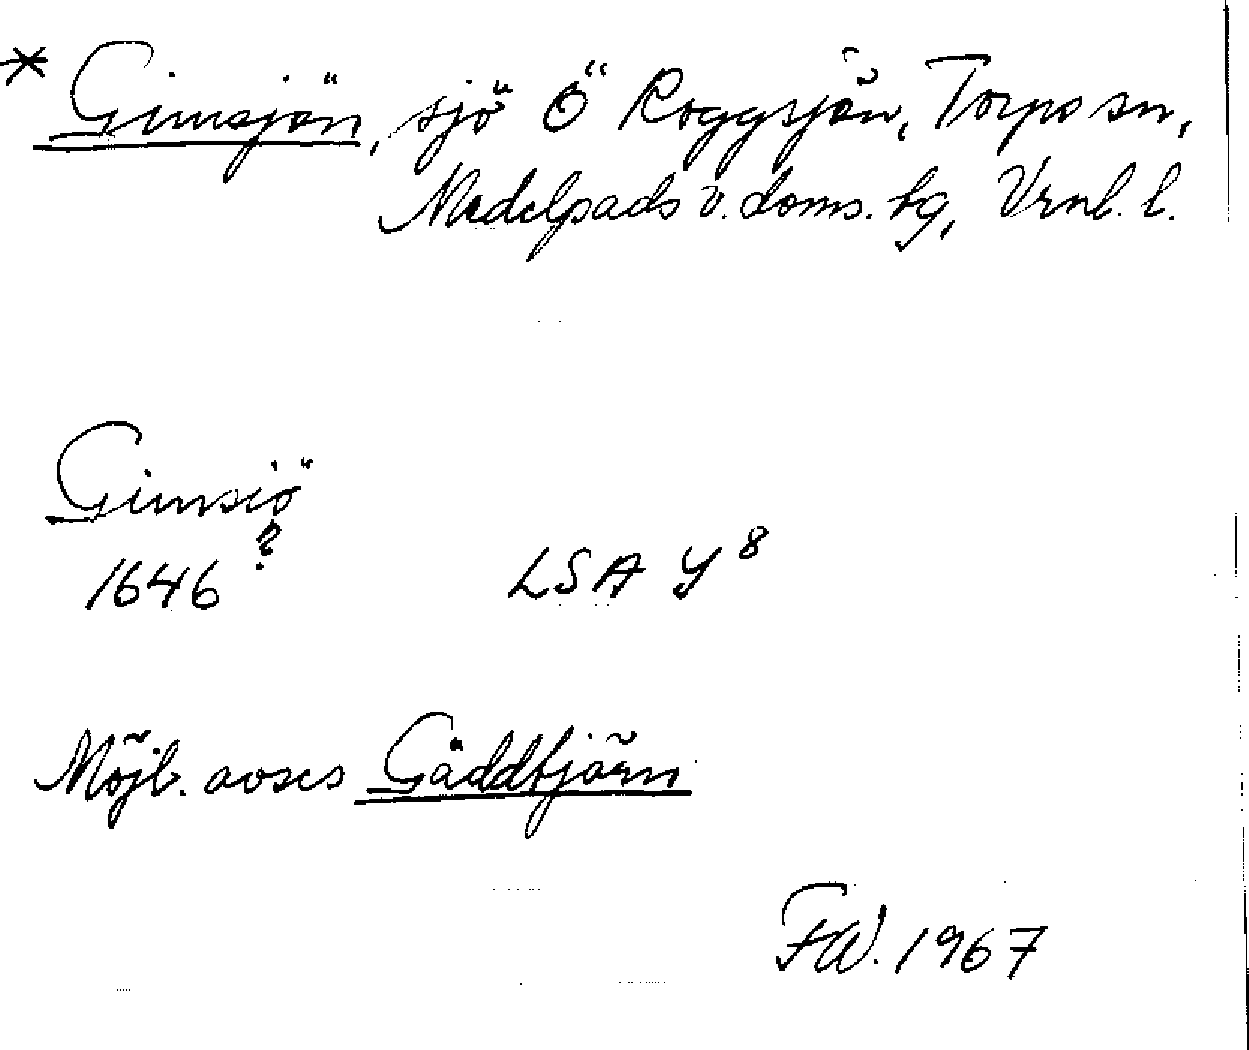 * Gimsjön, sjö Ö Roggsjön, Torps sn,
Medelpads v. doms. tg, Vrnl. l.
Gimsiö
1646 ? LSA Y 8
Möjl. avses Gäddtjärn
FW. 1967